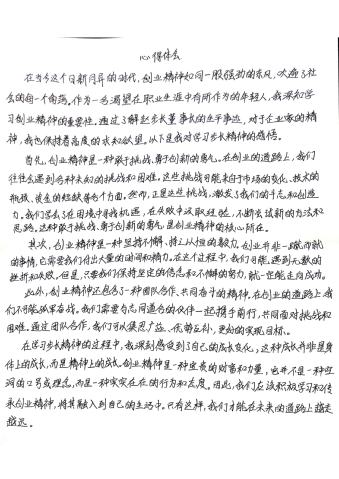 心得体会
在当今这个日新月异的时代，创业精神如同一股强劲的东风，吹遍了社
会的每一个角落。作为一名渴望在职业生涯中有所作为的年轻人，我深知学
习创业精神的重要性。通过了解赵步长董事长的生平事迹，对于企业家的精
神，我也保持着高度的求知欲望。以下是我对学习步长精神的感悟。
首先，创业精神是一种敢于挑战、勇于创新的勇气。在创业的道路上，我们
往往会遇到各种未知的挑战和困难。这些挑战可能来自于市场的变化、技术的
瓶颈、资金的短缺等各个方面。然而，正是这些挑战，激发了我们的斗志和创造
力。我们学会了在困境中寻找机遇，在失败中汲取经验，不断尝试新的方法和
思路。这种敢于挑战、勇于创新的勇气，是创业精神的核心所在。
其次，创业精神是一种坚持不懈、持之以恒的毅力。创业并非一蹴而就
的事情，它需要我们付出大量的时间和精力。在这个过程中，我们可能遇到无数的
挫折和失败。但是，只要我们保持坚定的信念和不懈的努力，就一定能走向成功。
此外，创业精神还包含了一种团队合作、共同奋斗的精神。在创业的道路上，我
们不可能孤军奋战。我们需要与志同道合的伙伴一起携手前行，共同面对挑战和
困难。通过团队合作，我们可以集思广益、优势互补，更好的实现目标。
在学习步长精神的过程中，我深刻感受到了自己的成长变化，这种成长并非是身
体上的成长，而是精神上的成长。创业精神是一种宝贵的财富和力量，它并不是一种空
洞的口号或理念，而是一种实实在在的行为和态度。因此，我们应该积极学习和传
承创业精神，将其融入到自己的生活中。只有这样，我们才能在未来的道路上越走
越远。